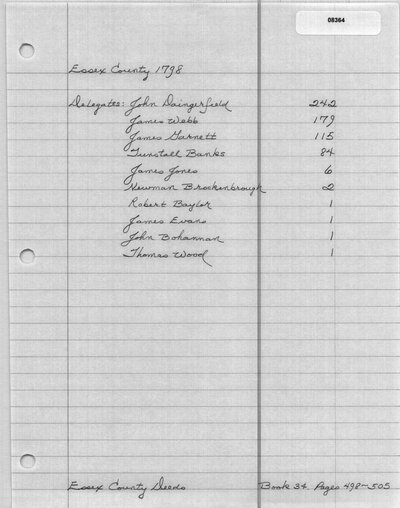 08364
Essex County 1798
Delegates: John Daingerfield 242
James Webb 179
James Garnett 115
Tunstall Banks 84
James Jones 6
Newman Brockenbrough 2
Robert Baylor 1
James Evans 1
John Bohannan 1
Thomas Wood 1
Essex County Deeds Book 34, Pages 498-505